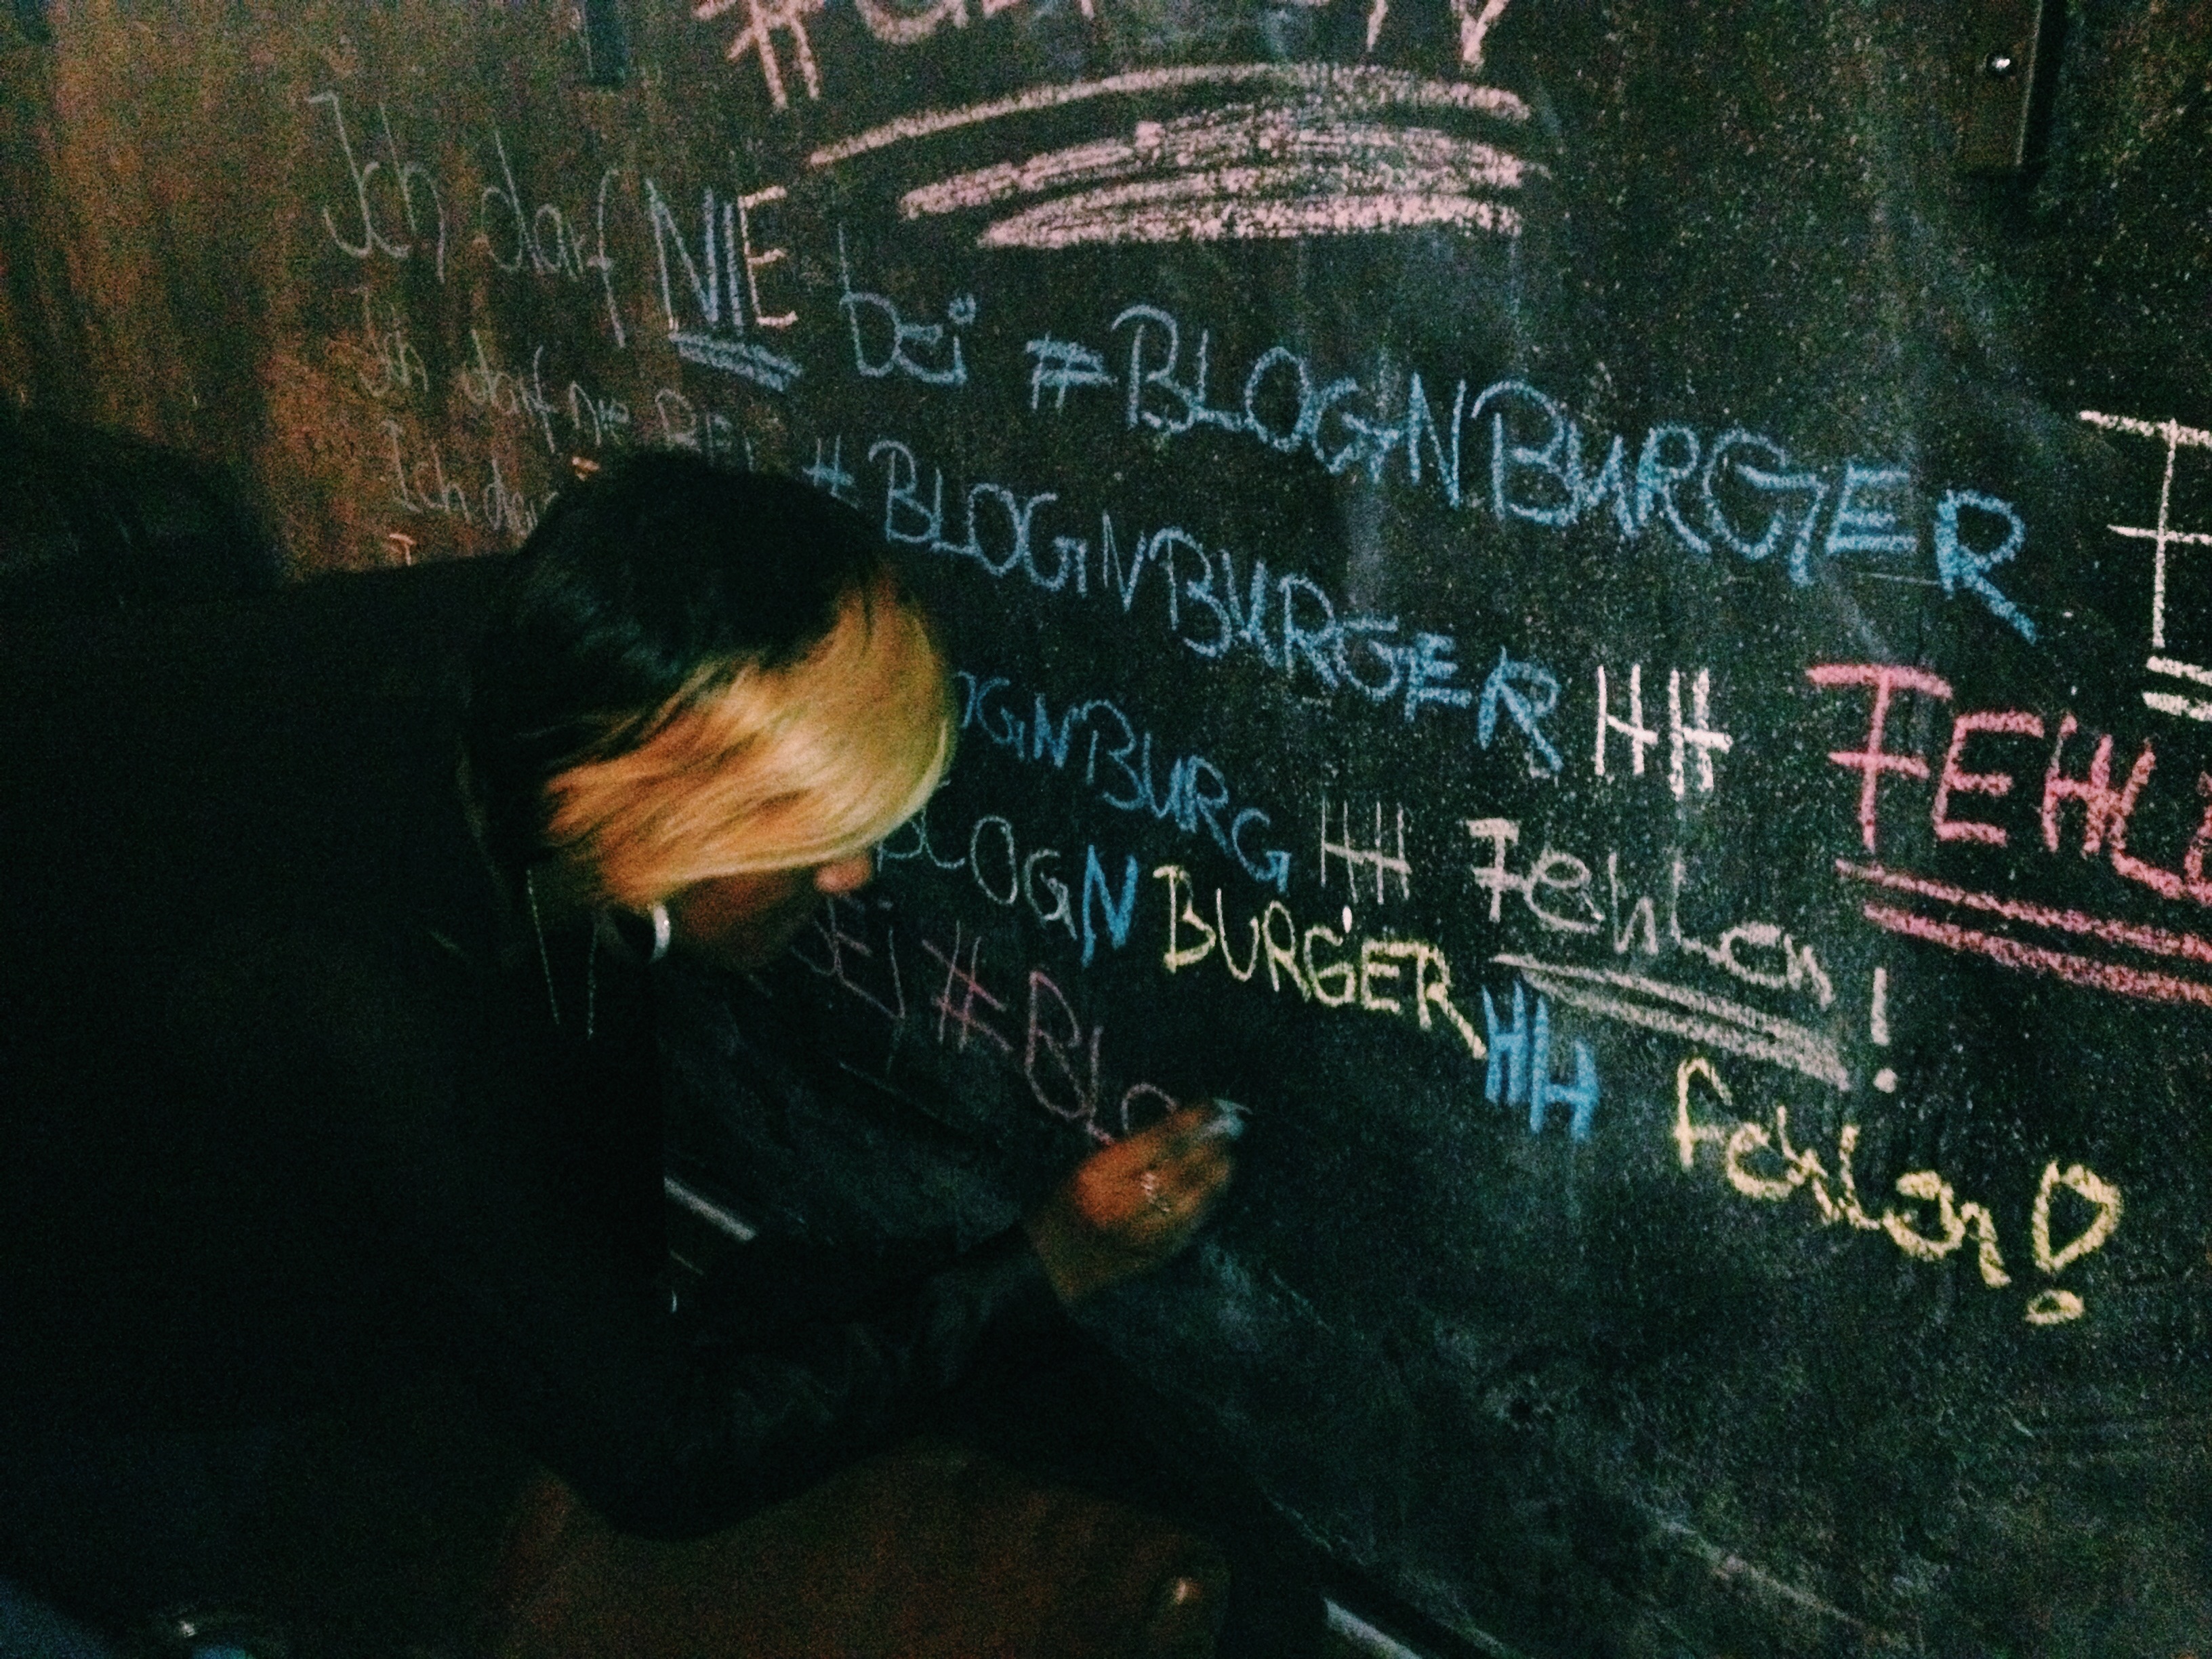 Ich darf NIE bei #BLOGNBURGER
Ich darf nie BEI #BLOGNBURGER HH FEHLE
Ich OGNBURG HH Fehlen!
BLOGN BURGER HH fehlen!
EI #BLO